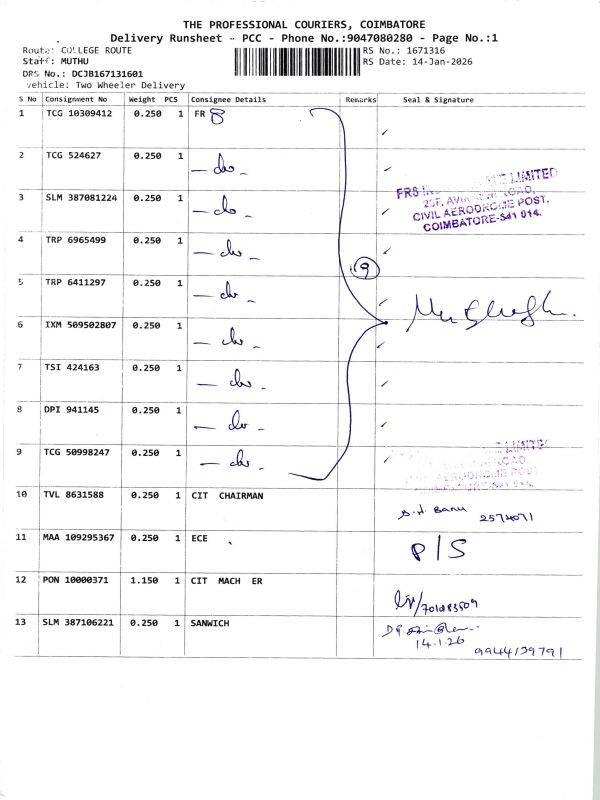 THE PROFESSIONAL COURIERS, COIMBATORE
Delivery Runsheet - PCC - Phone No.:9047080280 - Page No.:1
Route: COLLEGE ROUTE
RS No.: 1671316
Staff: MUTHU
RS Date: 14-Jan-2026
DRS No.: DCJB167131601
Vehicle: Two Wheeler Delivery
S No Consignment No Weight PCS Consignee Details Remarks Seal & Signature
1 TCG 10309412 0.250 1 FR 8
2 TCG 524627 0.250 1 - do -
3 SLM 387081224 0.250 1 - do -
4 TRP 6965499 0.250 1 - do -
5 TRP 6411297 0.250 1 - do -
6 IXM 509502807 0.250 1 - do -
7 TSI 424163 0.250 1 - do -
8 DPI 941145 0.250 1 - do -
9 TCG 50998247 0.250 1 - do -
9
FRS LIMITED
ROAD,
CIVIL AERODROME POST,
COIMBATORE-641 014.
LIMITED
ROAD
AERODROME POST
10 TVL 8631588 0.250 1 CIT CHAIRMAN
2574071
11 MAA 109295367 0.250 1 ECE P/S
12 PON 10000371 1.150 1 CIT MACH ER
13 SLM 387106221 0.250 1 SANWICH
14.1.26